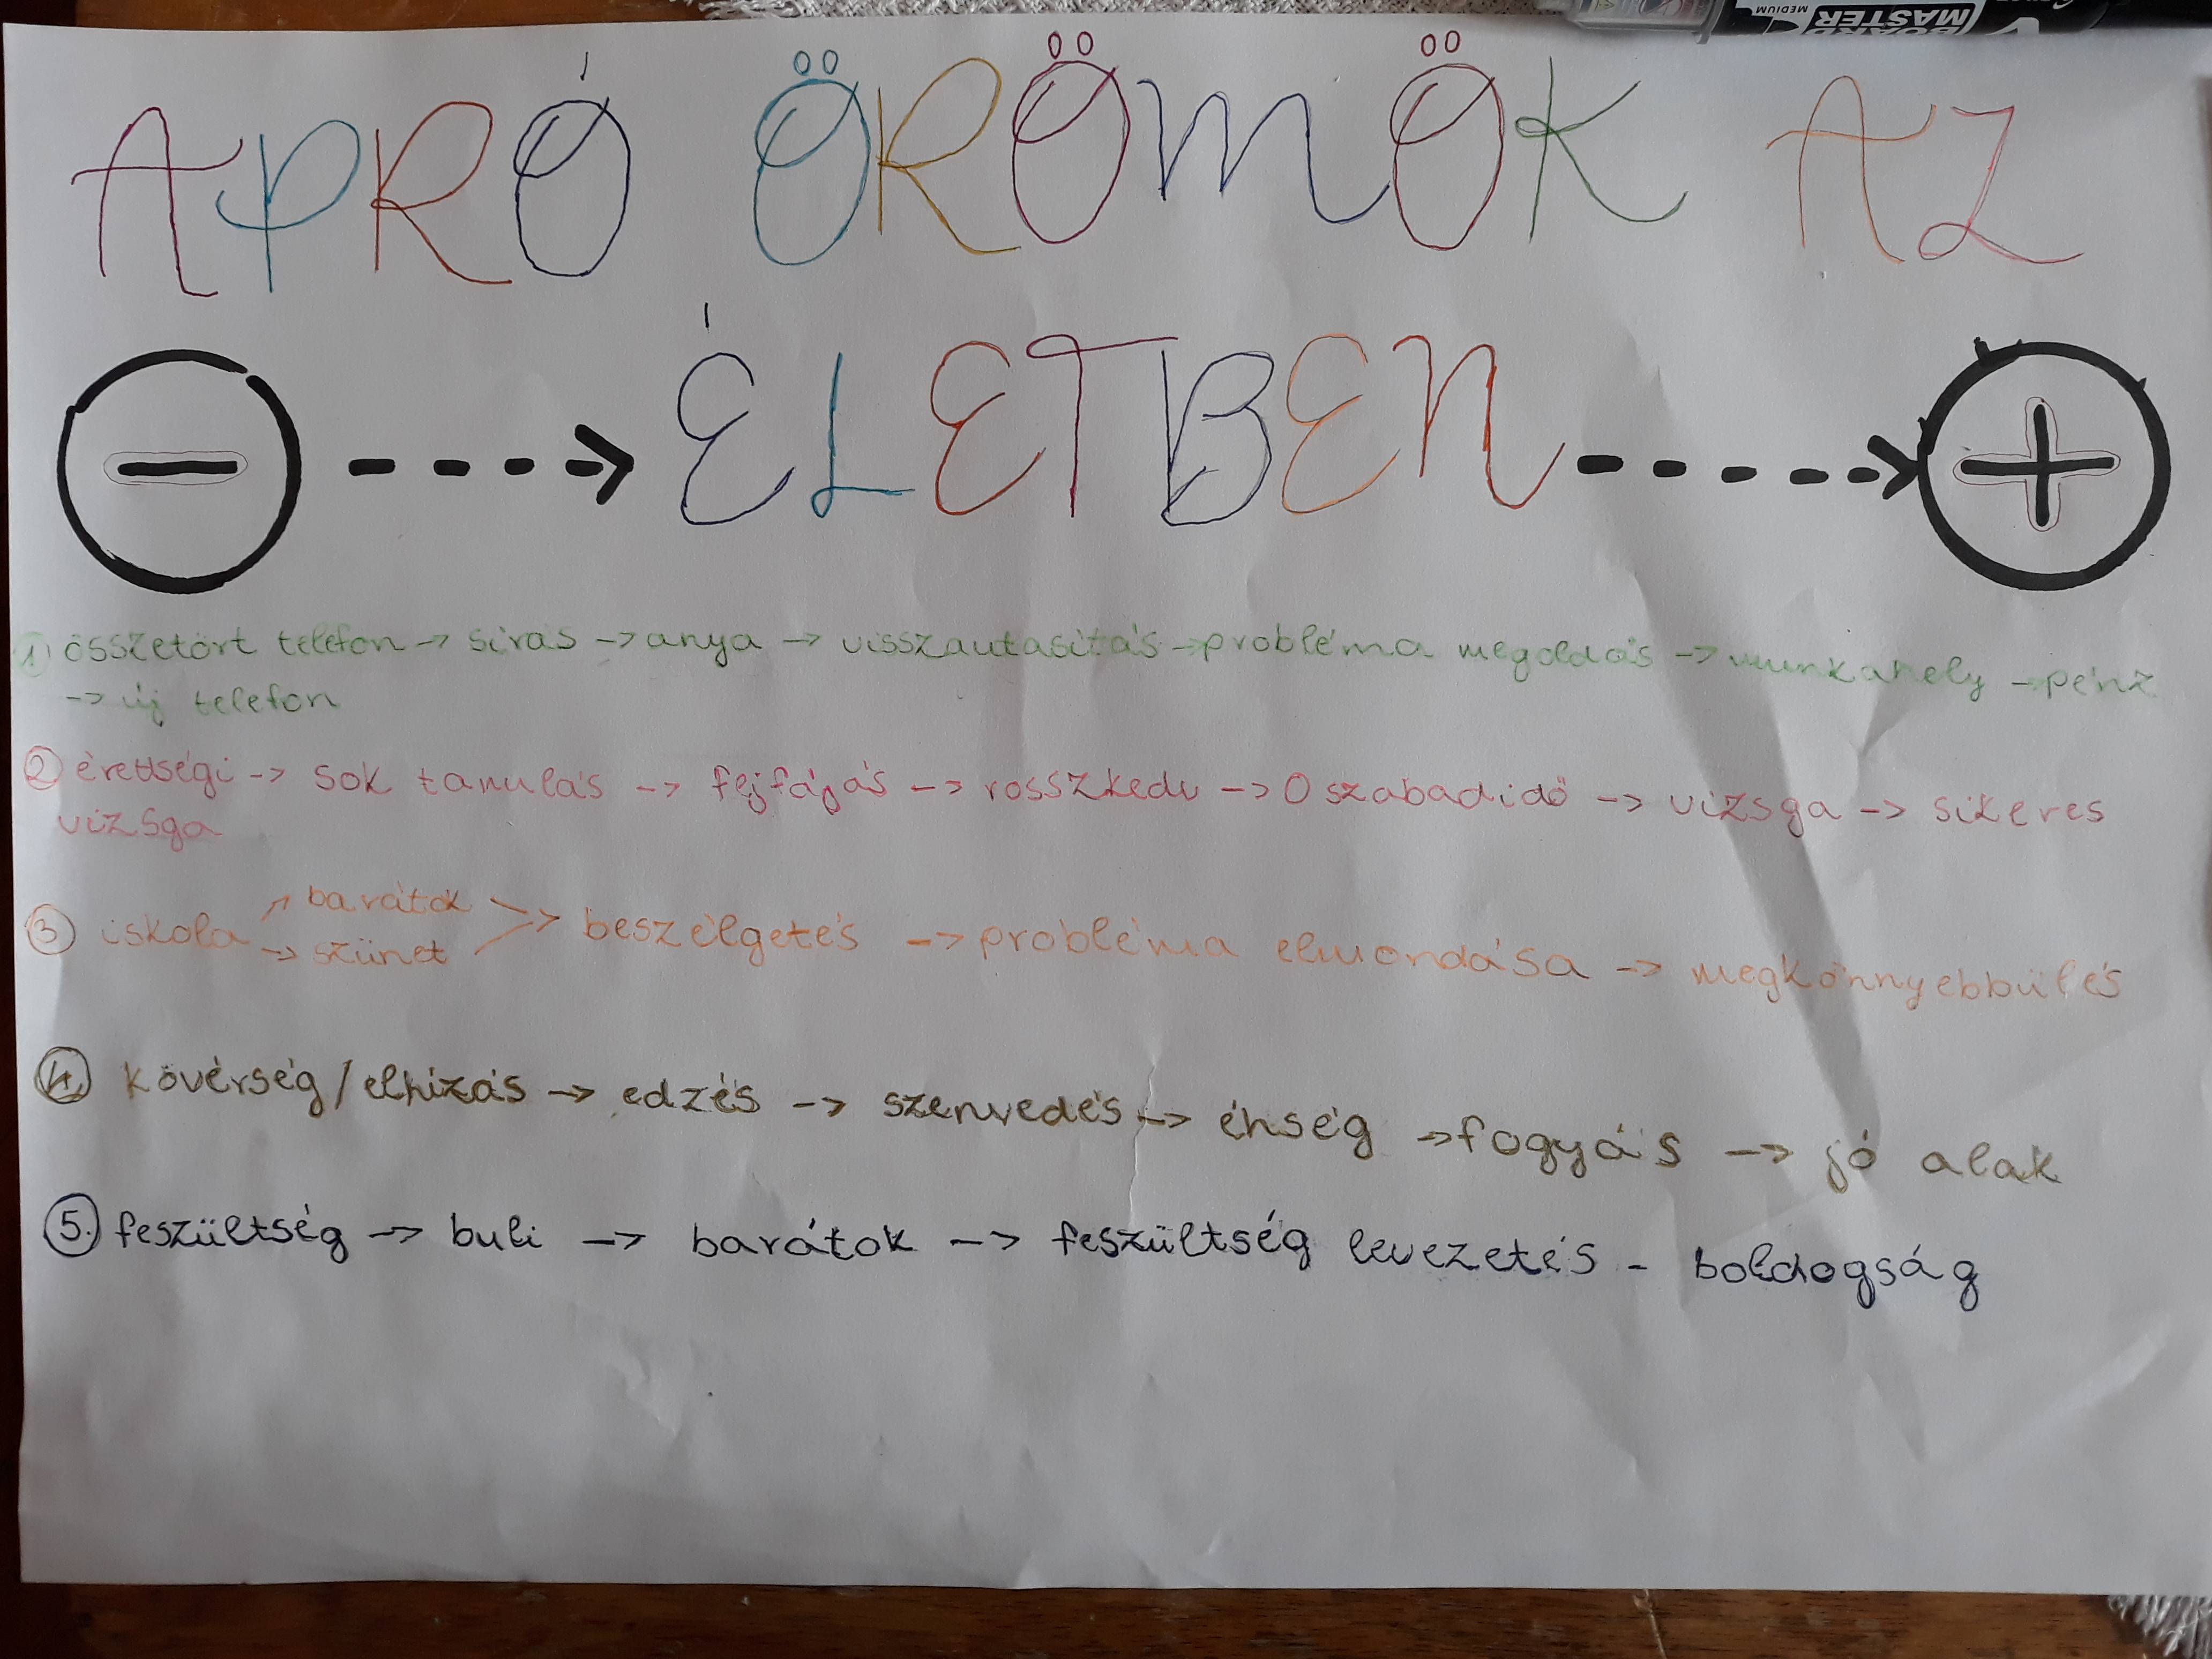 APRÓ ÖRÖMÖK AZ
ÉLETBEN
1) összetört telefon -> sírás -> anya -> visszautasítás -> probléma megoldás -> munkahely -> pénz
-> új telefon
2) érettségi -> sok tanulás -> fejfájás -> rosszkedv -> 0 szabadidő -> vizsga -> sikeres
vizsga
3) iskola ↗ barátok
-> szünet >> beszélgetés -> probléma elmondása -> megkönnyebbülés
4.) kövérség/elhízás -> edzés -> szenvedés -> éhség -> fogyás -> jó alak
5.) feszültség -> buli -> barátok -> feszültség levezetés - boldogság
BOARD
MASTER
MEDIUM